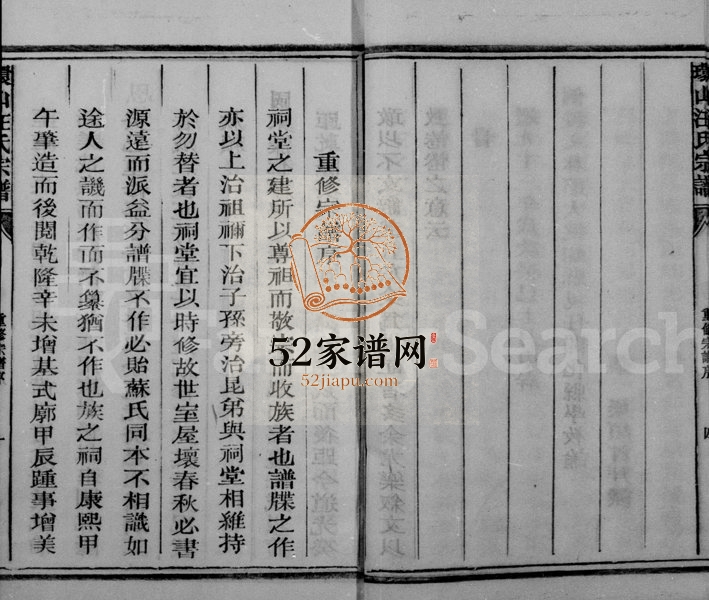 瓌山汪氏宗譜
重修宗譜序
四
重修宗譜序
祠堂之建所以尊祖而敬宗而收族者也譜牒之作
亦以上治祖禰下治子孫旁治昆弟與祠堂相維持
於勿替者也祠堂宜以時修故世室屋壞春秋必書
源遠而派益分譜牒不作必貽蘇氏同本不相識如
途人之譏而作而不纂猶不作也族之祠自康熙甲
午肇造而後閱乾隆辛未增基式廓甲辰踵事增美
瓌山汪氏宗譜
重修宗譜序
一
52家谱网
52jiapu.com
Search